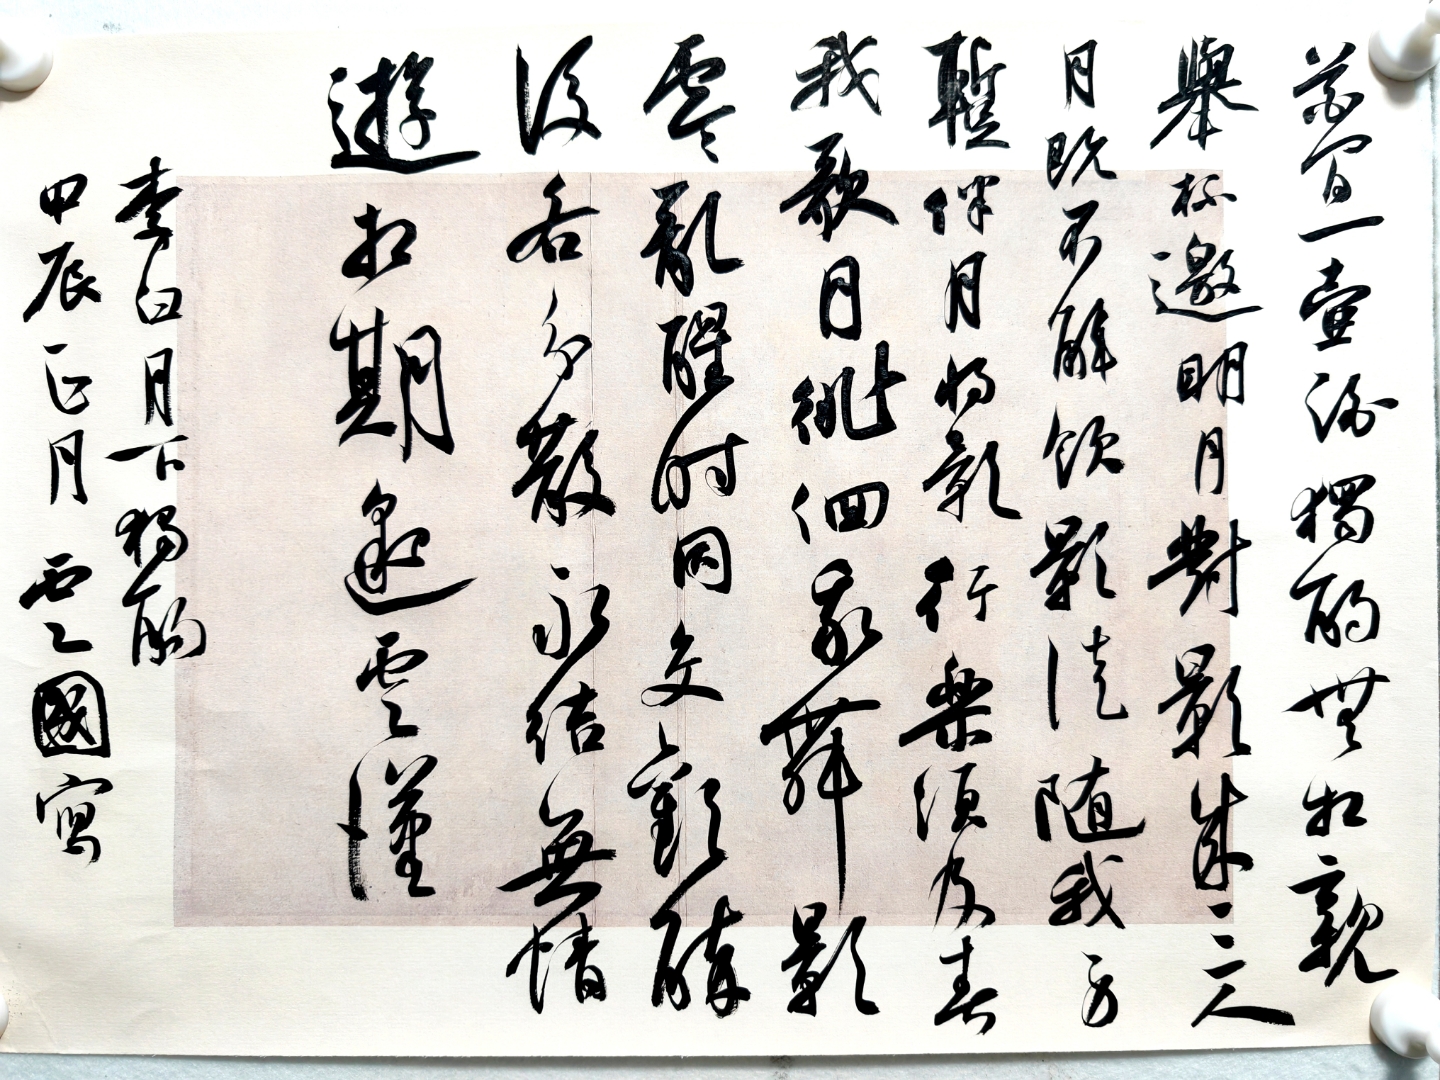 花間一壺酒獨酌無相親
舉杯邀明月對影成三人
月既不解飲影徒随我身
暫伴月將影行樂須及春
我歌月徘徊我舞影
零亂醒时同交歡醉
後各分散永结無情
遊相期邈雲漢
李白月下獨酌
甲辰正月雲國寫